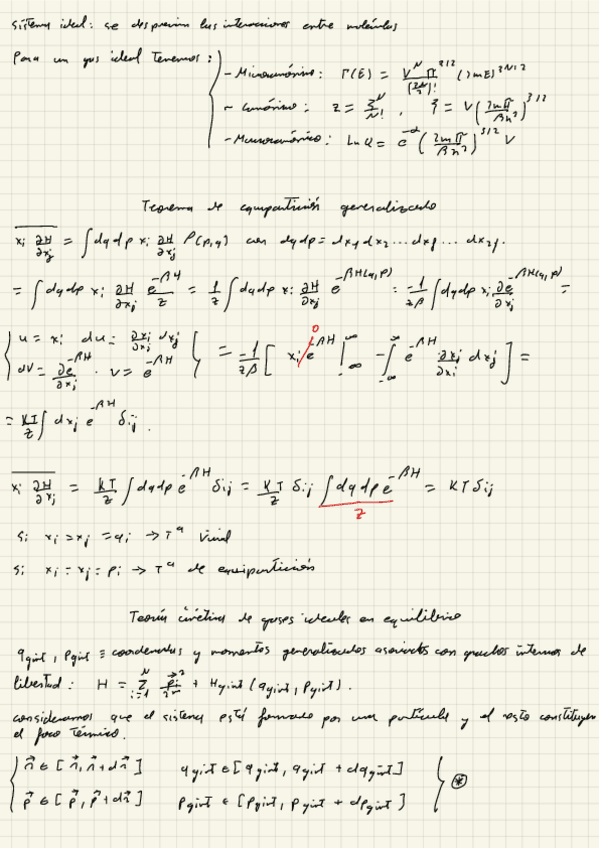 sistema ideal: se desprecian las interacciones entre moléculas
Para un gas ideal tenemos:
- Microcanónico: Γ(E) = V^N π^{3N/2} / (3N/2)! (2mE)^{3N/2}
- Canónico: Z = ξ^N / N! , ξ = V (2mπ / βh²)^{3/2}
- Macrocanónico: Ln Q = e^{-α} (2mπ / βh²)^{3/2} V
Teorema de equipartición generalizado
x_i ∂H/∂x_j = ∫dqdp x_i ∂H/∂x_j ρ(p,q) con dqdp = dx_1 dx_2 ... dx_j ... dx_{2f}.
= ∫dqdp x_i ∂H/∂x_j e^{-βH}/Z = 1/Z ∫dqdp x_i ∂H/∂x_j e^{-βH(q,p)} = -1/Zβ ∫dqdp x_i ∂e^{-βH(q,p)}/∂x_j =
{ u = x_i du = ∂x_i/∂x_j dx_j
dV = ∂e^{-βH}/∂x_j . v = e^{-βH} } = -1/Zβ [ x_i e^{-βH} |_{-∞}^{∞} 0 - ∫_{-∞}^{∞} e^{-βH} ∂x_j/∂x_i dx_j ] =
= KT/Z ∫ dx_j e^{-βH} δ_ij .
x_i ∂H/∂x_j = KT/Z ∫dqdp e^{-βH} δ_ij = KT/Z δ_ij ∫dqdp e^{-βH} = KT δ_ij
Z
Si x_i = x_j = q_i → T^a Virial
Si x_i = x_j = p_i → T^a de equipartición
Teoría cinética de gases ideales en equilibrio
q_gint, p_gint ≡ coordenadas y momentos generalizados asociados con grados internos de
libertad: H = Σ_{i=1}^N p_i²/2m + H_gint (q_gint, p_gint).
consideramos que el sistema está formado por una partícula y el resto constituyen
el foco térmico.
{ r ∈ [r, r + dr] q_gint ∈ [q_gint, q_gint + dq_gint]
p ∈ [p, p + dr] p_gint ∈ [p_gint, p_gint + dp_gint] } ⊛